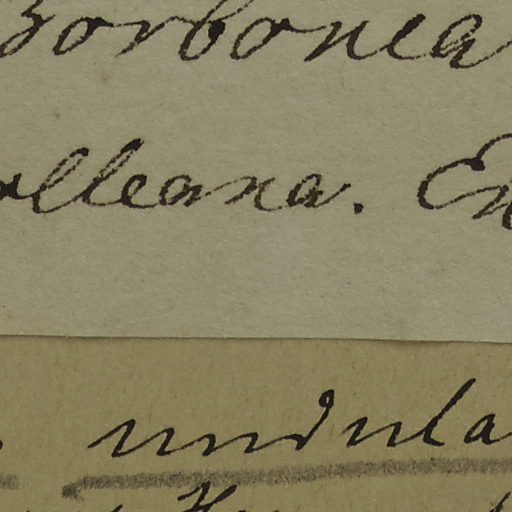 Borbonia
lleana. En
undula